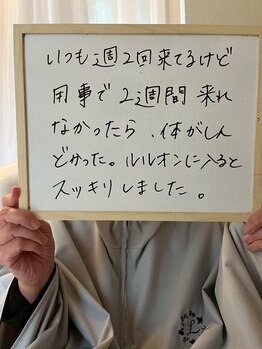 いつも週2回来てるけど
用事で2週間来れ
なかったら、体がしん
どかった。ルルオンに入ると
スッキリしました。
L